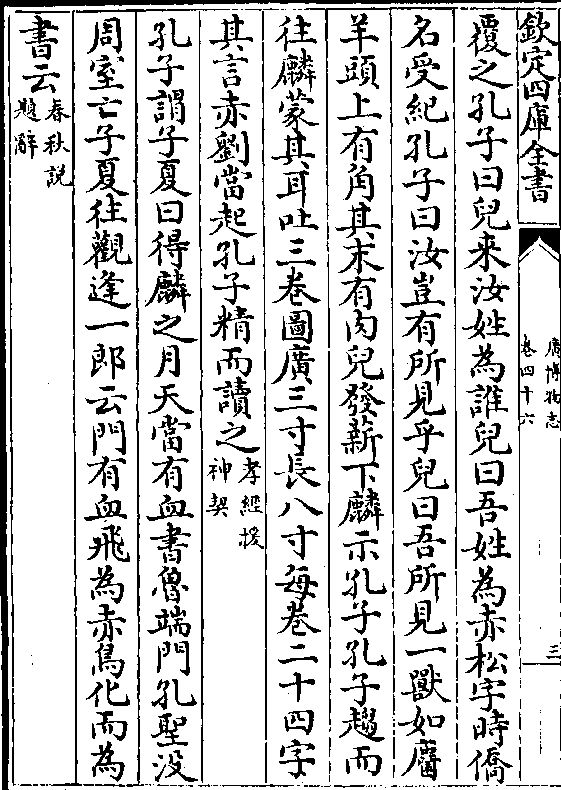 欽定四庫全書
廣博物志
卷四十六
三
覆之孔子曰兒来汝姓為誰兒曰吾姓為赤松字時僑
名受紀孔子曰汝豈有所見乎兒曰吾所見一獸如麕
羊頭上有角其末有肉兒發薪下麟示孔子孔子趨而
往麟蒙其耳吐三卷圖廣三寸長八寸每卷二十四字
其言赤劉當起孔子精而讀之孝經援
神契
孔子謂子夏曰得麟之月天當有血書魯端門孔聖没
周室亡子夏往觀逢一郎云門有血飛為赤鳥化而為
書云春秋說
題辭